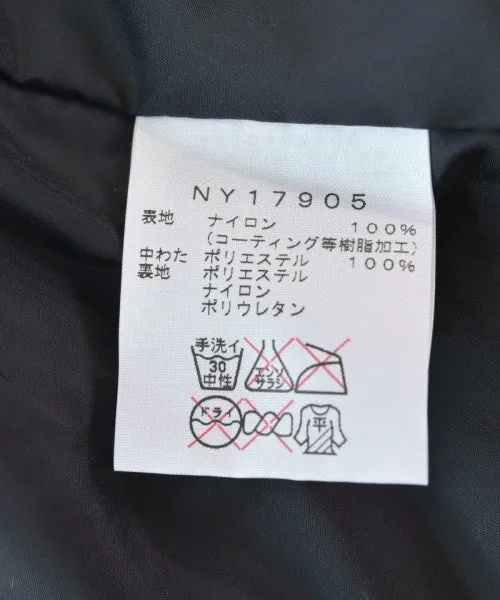 NY17905
表地 ナイロン 100%
(コーティング等樹脂加工)
中わた ポリエステル 100%
裏地 ポリエステル
ナイロン
ポリウレタン
手洗イ
30
中性
エンソ
サラシ
ドライ
平